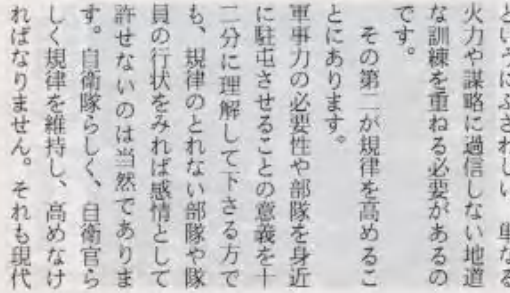 というにふさわしい、単なる
火力や謀略に過信しない地道
な訓練を重ねる必要があるの
です。
その第二が規律を高めるこ
とにあります。
軍事力の必要性や部隊を身近
に駐屯させることの意義を十
二分に理解して下さる方で
も、規律のとれない部隊や隊
員の行状をみれば感情として
許せないのは当然でありま
す。自衛隊らしく、自衛官ら
しく規律を維持し、高めなけ
ればなりません。それも現代